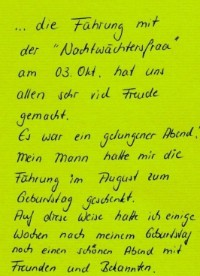 ... die Führung mit
der "Nachtwächtersfrau"
am 03. Okt. hat uns
allen sehr viel Freude
gemacht.
Es war ein gelungener Abend!
Mein Mann hatte mir die
Führung im August zum
Geburtstag geschenkt.
Auf diese Weise hatte ich einige
Wochen nach meinem Geburtstag
noch einen schönen Abend mit
Freunden und Bekannten.